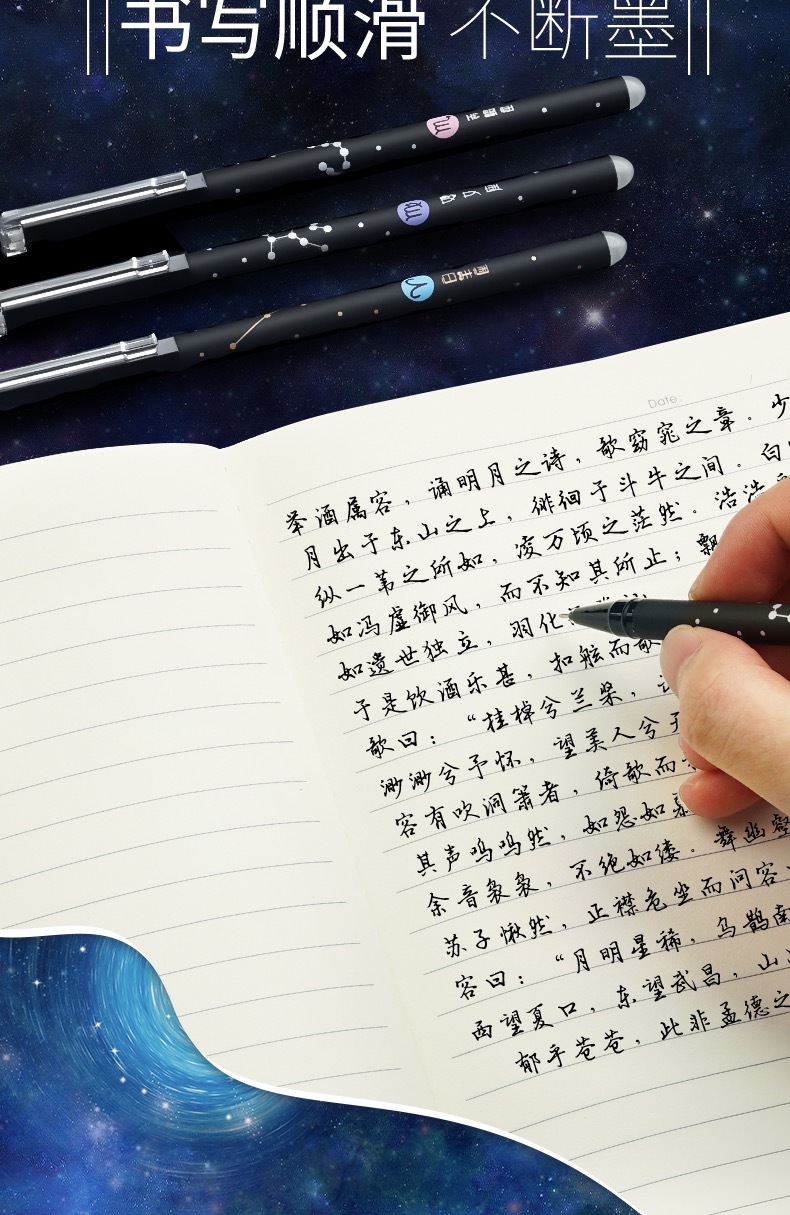 书写顺滑 不断墨
Date:
举酒属客，诵明月之诗，歌窈窕之章。少
月出于东山之上，徘徊于斗牛之间。白
纵一苇之所如，凌万顷之茫然。浩浩
如冯虚御风，而不知其所止；飘
如遗世独立，羽化
于是饮酒乐甚，扣舷而歌
歌曰：“桂棹兮兰桨，
渺渺兮予怀，望美人兮
客有吹洞箫者，倚歌而
其声呜呜然，如怨如慕
余音袅袅，不绝如缕。舞幽壑
苏子愀然，正襟危坐而问客
客曰：“月明星稀，乌鹊南
西望夏口，东望武昌，山
郁乎苍苍，此非孟德之